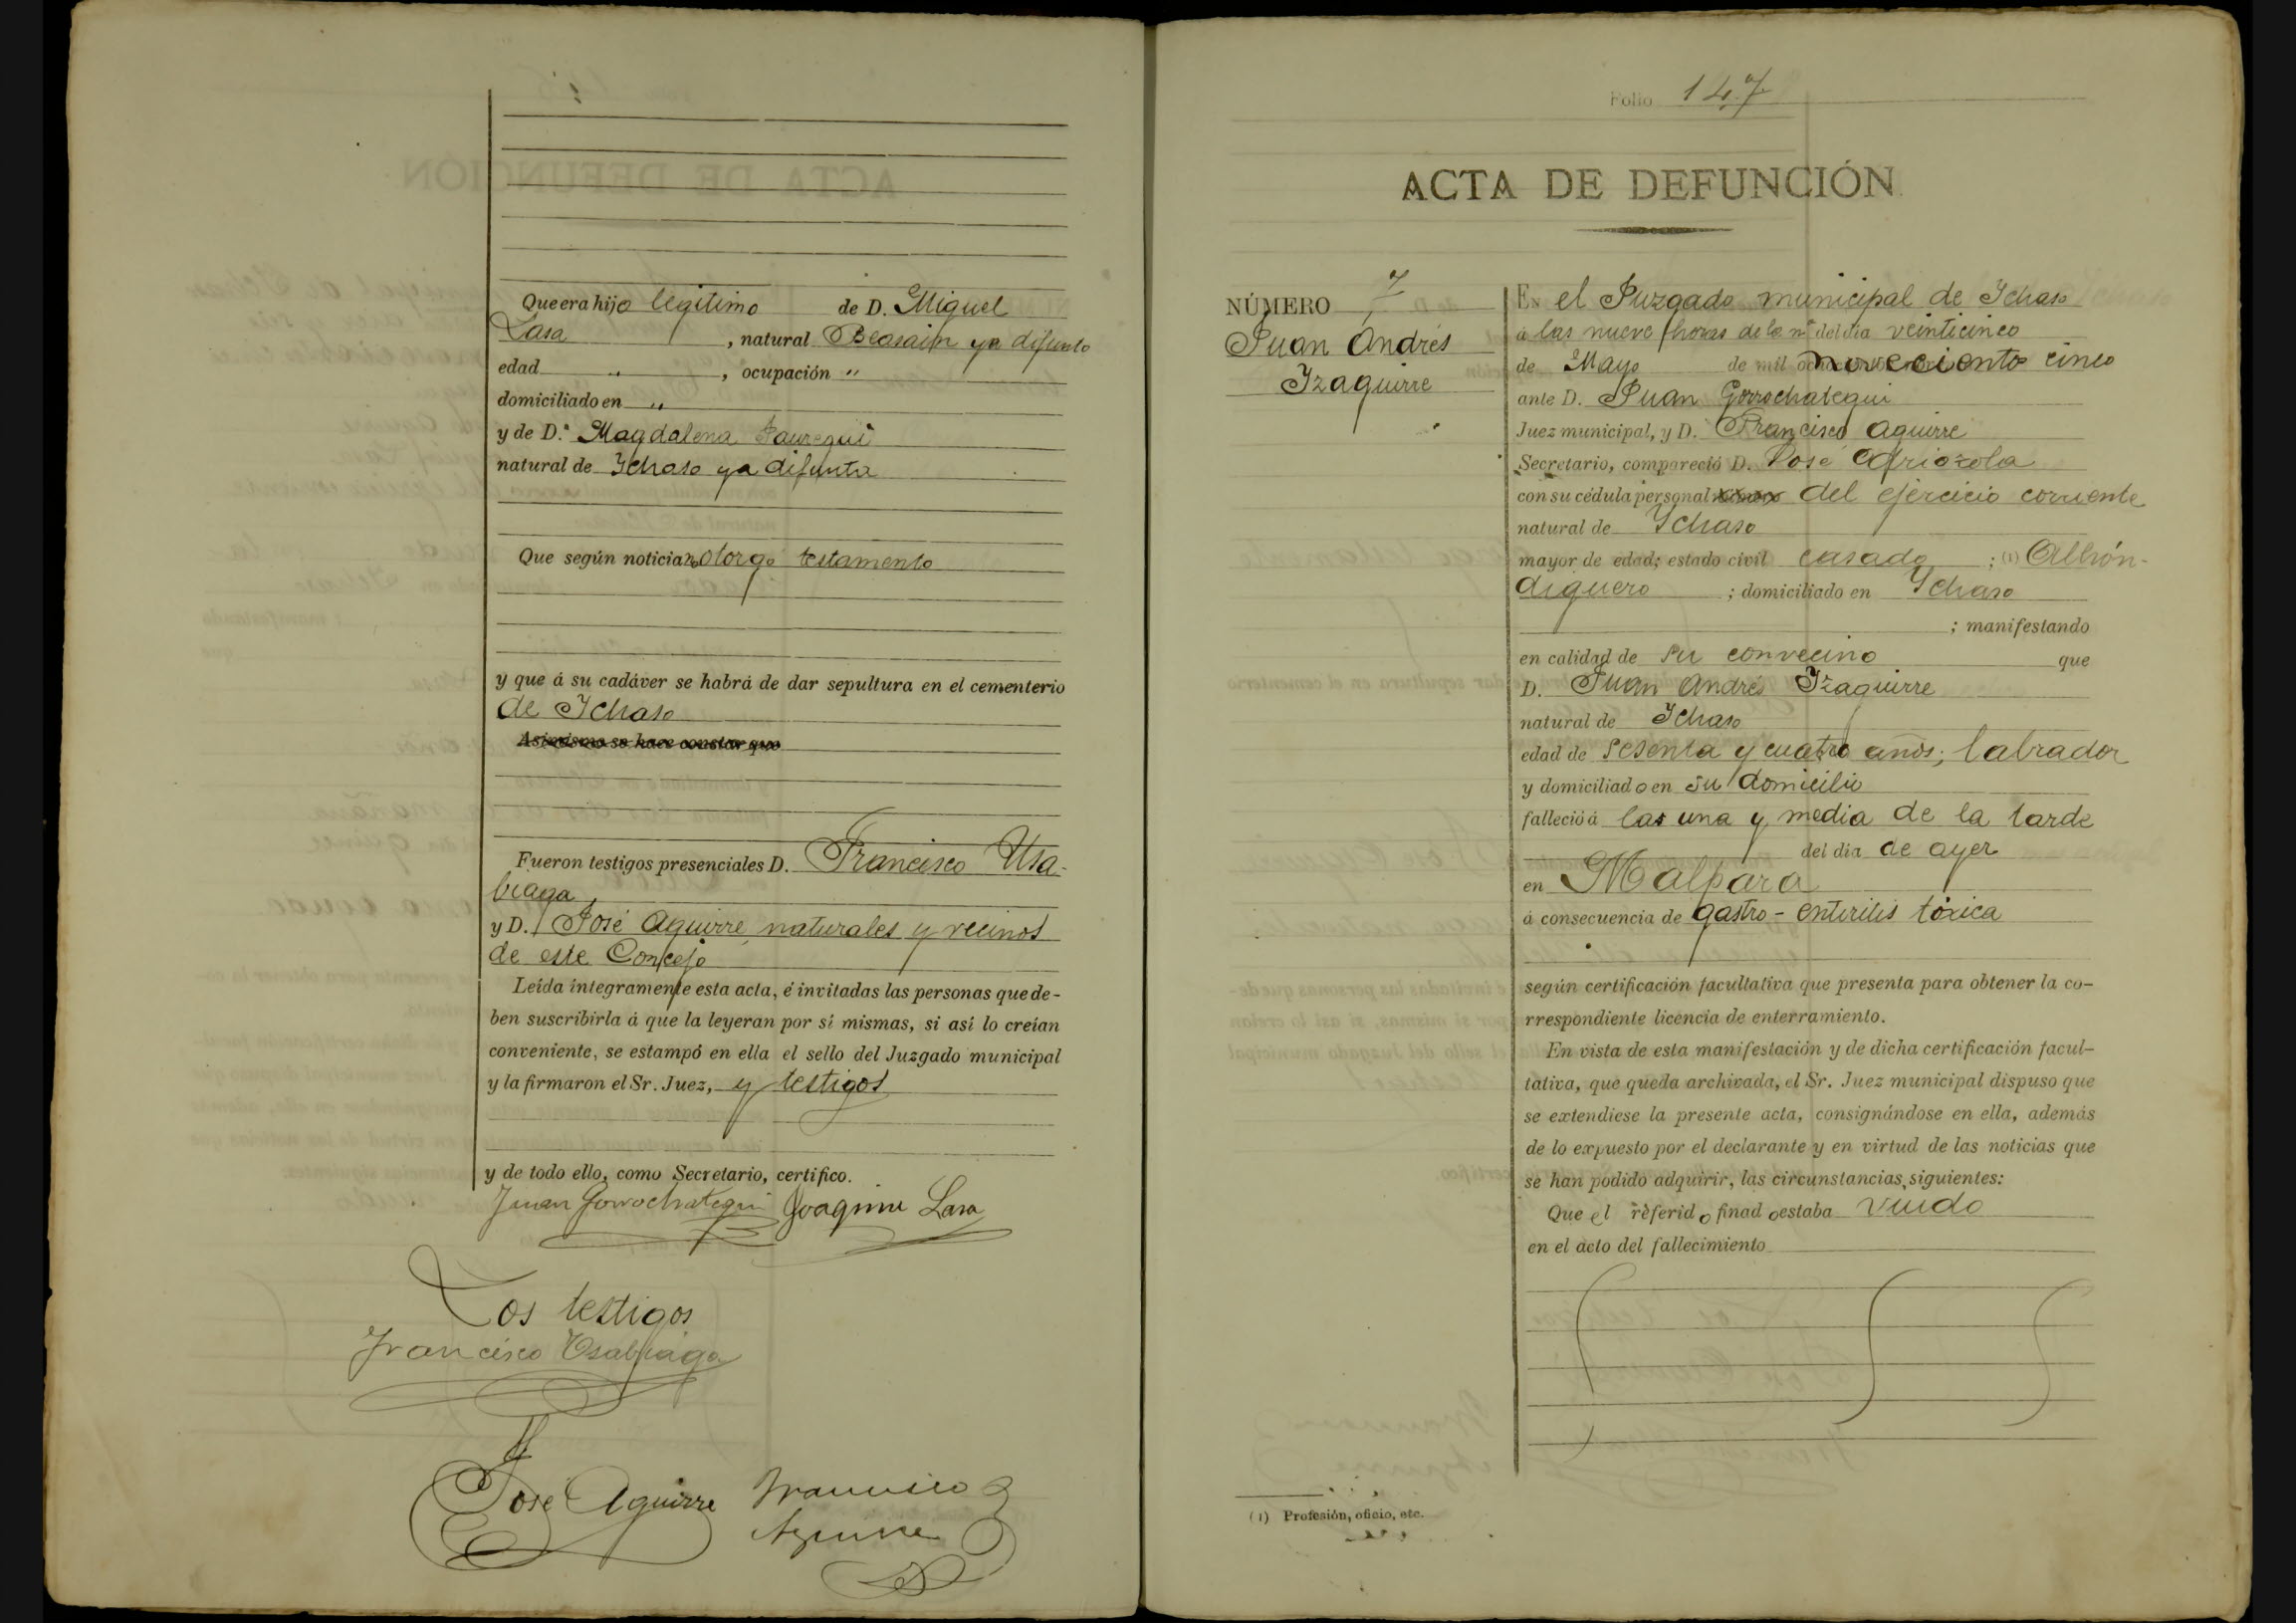 Que era hijo legitimo de D. Miguel
Lasa, natural Beasain ya difunto
edad " , ocupación "
domiciliado en "
y de D.ª Magdalena Jauregui
natural de Ichaso ya difunta
Que según noticia no otorgo testamento
y que á su cadáver se habrá de dar sepultura en el cementerio
de Ichaso
Asimismo se hace constar que
Fueron testigos presenciales D. Francisco Usa-
biaga,
y D. José Aguirre, naturales y vecinos
de este Concejo
Leída íntegramente esta acta, é invitadas las personas que de-
ben suscribirla á que la leyeran por sí mismas, si así lo creían
conveniente, se estampó en ella el sello del Juzgado municipal
y la firmaron el Sr. Juez, y testigos
y de todo ello, como Secretario, certifico.
Juan Gorrochategui Joaquin Lasa
Los testigos
Francisco Usabiaga
José Aguirre Francisco
Aguirre
Folio 147
ACTA DE DEFUNCIÓN
NÚMERO 7
Juan Andrés
Izaguirre
EN el Juzgado municipal de Ichaso
á las nueve horas de la mª del día veinticinco
de Mayo de mil novecientos cinco
ante D. Juan Gorrochategui
Juez municipal, y D. Francisco Aguirre
Secretario, compareció D. José Ariozola
con su cédula personal del ejercicio corriente
natural de Ichaso
mayor de edad; estado civil casado ; (1) Alhón-
diguero ; domiciliado en Ichaso
; manifestando
en calidad de su convecino que
D. Juan Andrés Izaguirre
natural de Ichaso
edad de sesenta y cuatro años; labrador
y domiciliado en su domicilio
falleció á las una y media de la tarde
del día de ayer
en Malpara
á consecuencia de gastro-enteritis tóxica
según certificación facultativa que presenta para obtener la co-
rrespondiente licencia de enterramiento.
En vista de esta manifestación y de dicha certificación facul-
tativa, que queda archivada, el Sr. Juez municipal dispuso que
se extendiese la presente acta, consignándose en ella, además
de lo expuesto por el declarante y en virtud de las noticias que
se han podido adquirir, las circunstancias siguientes:
Que el referido finado estaba viudo
en el acto del fallecimiento
(1) Profesión, oficio, etc.